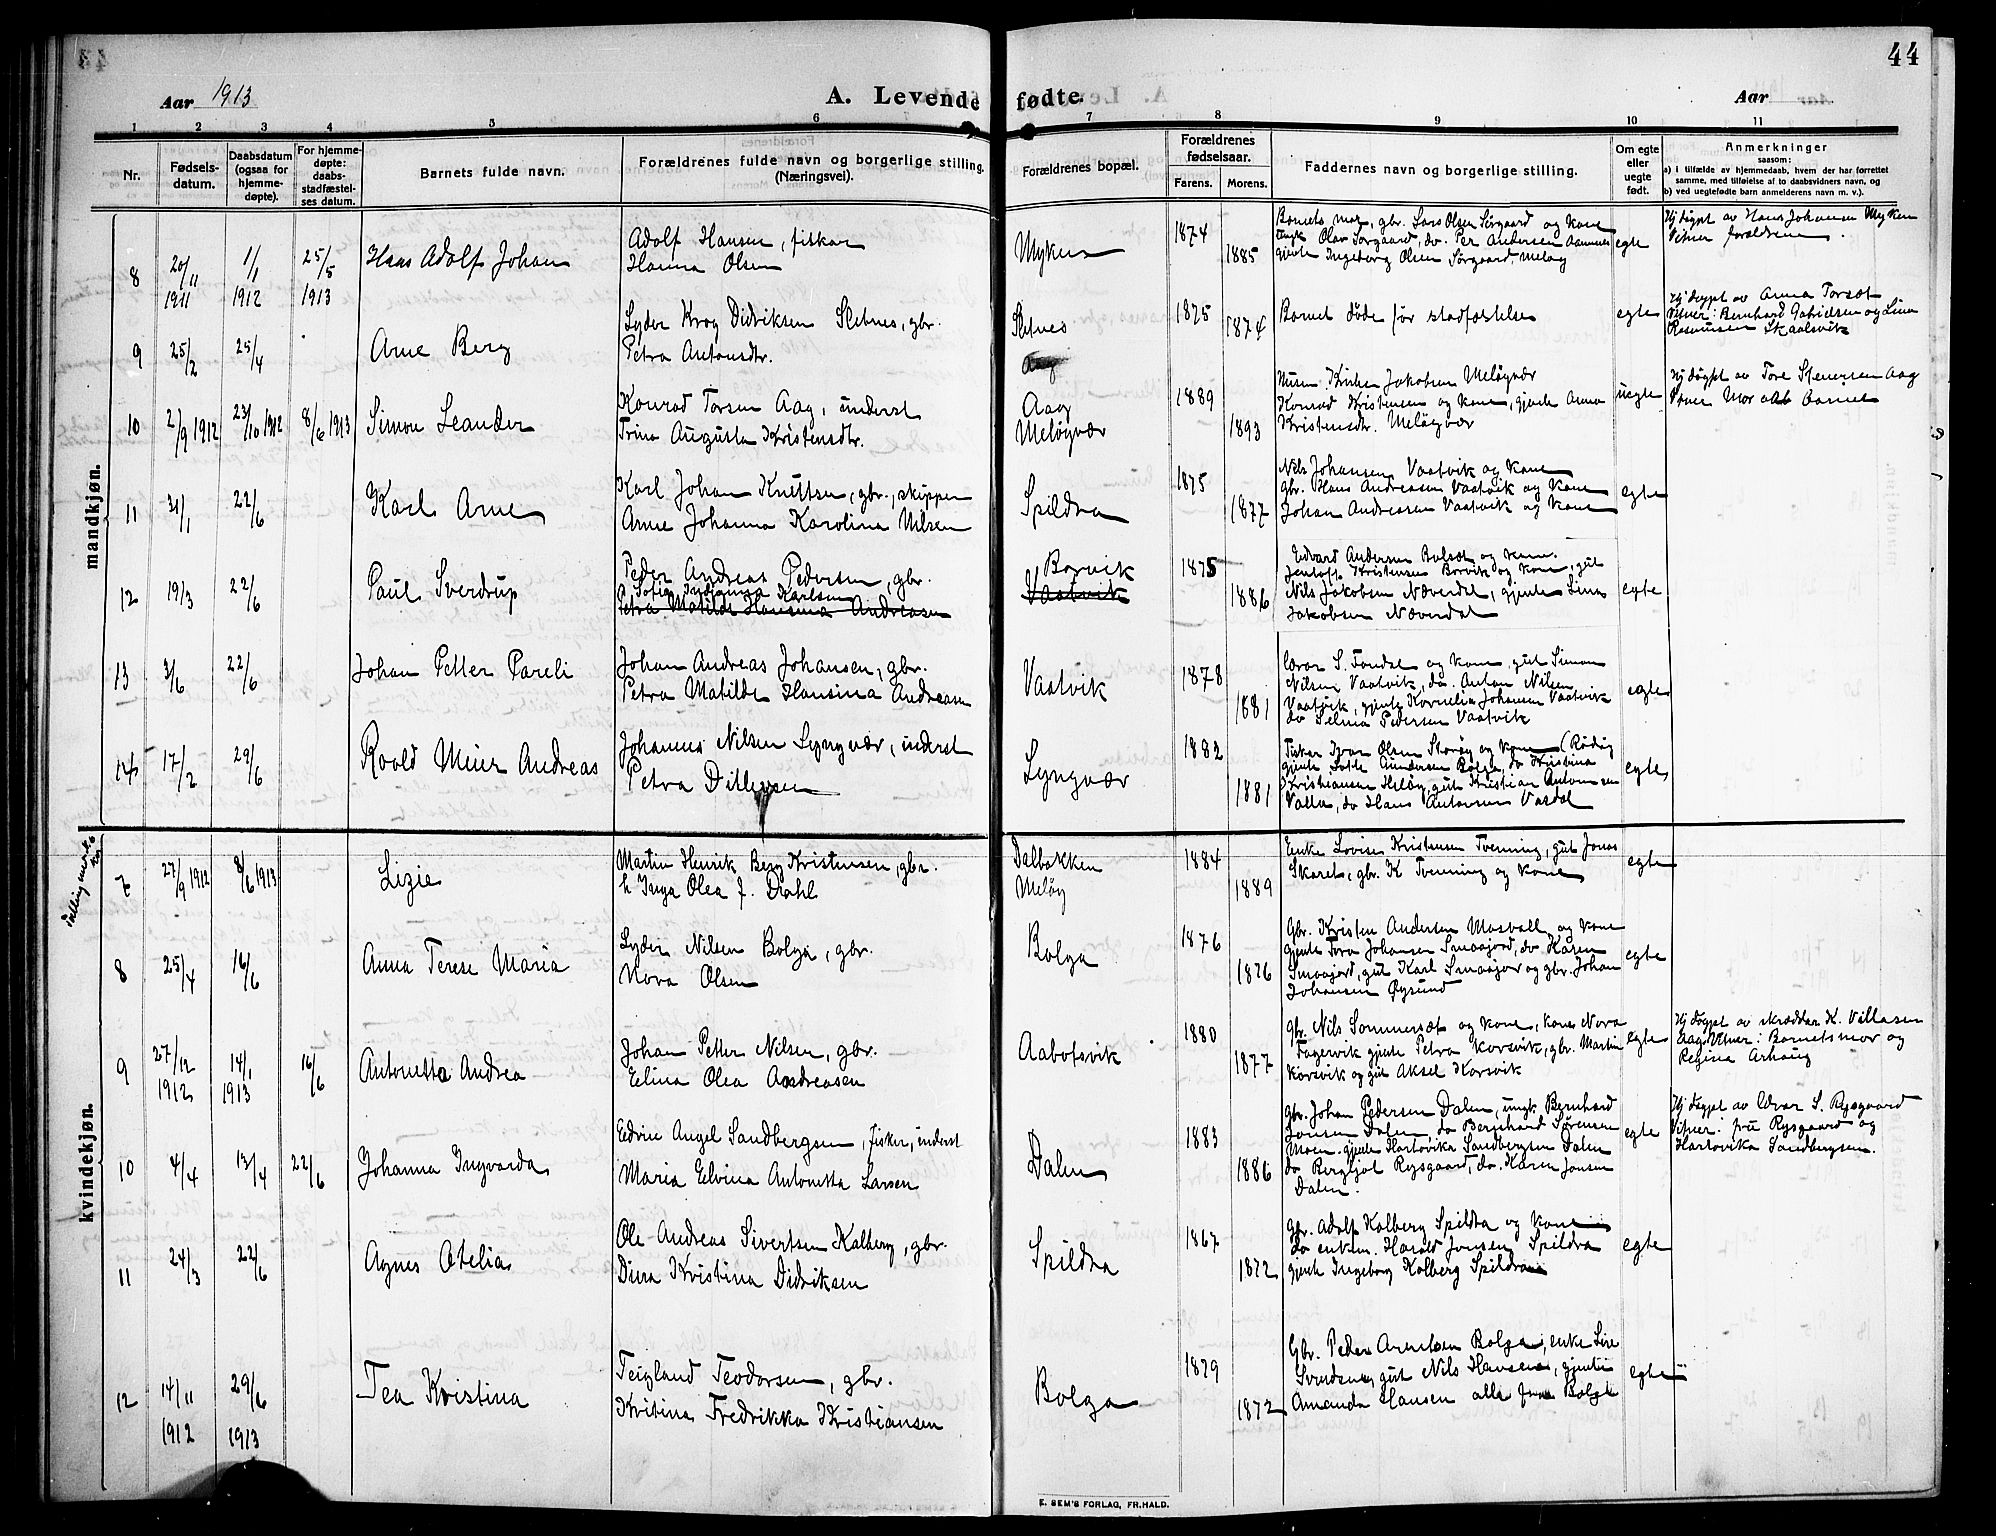 44
Aar 1913
A. Levende fødte.
Aar
1 2 3 4 5 6 7 8 9 10 11
Nr.
Fødsels-
datum.
Daabsdatum
(ogsaa for
hjemme-
døpte).
For hjemme-
døpte:
daabs-
stadfæstel-
ses datum.
Barnets fulde navn.
Forældrenes fulde navn og borgerlige stilling.
(Næringsvei).
Forældrenes bopæl.
Forældrenes
fødselsaar.
Farens. Morens.
Faddernes navn og borgerlige stilling.
Om egte
eller
uegte
født.
Anmerkninger
saasom:
a) I tilfælde av hjemmedaab, hvem der har forrettet
samme, med tilføielse af to daabsvidners navn, og
b) ved uegtefødte barn anmelderens navn m. v.).
mandkjøn.
8
20/11 1911
1/1 1912
25/5 1913
Hans Adolf Johan
Adolf Hansen, fisker
Hanna Olsen
Myken
1874
1885
Barnets mor, gbr. Lars Olsen Sørgaard og kone
ungk Olav Sørgaard, do. Per Andersen
gjente Ingeborg Olsen Sørgaard, Meløy
egte
Hj.døpt av Hans Johansen Myken
Vitner forældrene.
9
25/2
25/4
Arne Berg
Lyder Krog Didriksen Sletnes, gbr.
Petra Antonsdtr.
Sletnes
1875
1874
Barnet døde før stadfæstelse
egte
Hj.døpt av Anna Torset
Vitner: Bernhard Gabrielsen og Lina
Rasmussen Skaalsvik
10
2/9 1912
23/10 1912
8/6 1913
Simon Leander
Konrad Torsen Aag, inderst
Trina Augusta Kristensdtr.
Aag
Meløyvær
1889
1893
Jakobsen Meløyvær
Konrad Kristensen og kone, gjente Anna
Kristensdtr. Meløyvær
uegte
Hj.døpt av Tore Stenersen Aag
11
31/1
22/6
Karl Arne
Karl Johan Knutsen, gbr., skipper
Anne Johanna Karolina Nilsen
Spildra
1875
1877
Nils Johansen Vaatvik og kone
gbr. Hans Andreasen Vaatvik og kone
Johan Andreasen Vaatvik og kone
egte
12
19/3
22/6
Paul Sverdrup
Peder Andreas Pedersen, gbr.
Sofie Indianna Karlsen
Petra Matilde Hansina Andreasen
Borvik
Vaatvik
1875
1886
Edvard Andersen Bolset og kone
Jentoft Kristensen Borvik og kone, gut
Nils Jakobsen Næverdal, gjente Lina
Jakobsen Næverdal
egte
13
3/6
22/6
Johan Petter Pareli
Johan Andreas Johansen, gbr.
Petra Matilde Hansina Andreasen
Vaatvik
1878
1881
Lærer S. Fondal og kone, gut Simon
Nilsen Vaatvik, do. Anton Nilsen
Vaatvik, gjente Kornelia Johansen Vaatvik
do Selma Pedersen Vaatvik
egte
14
17/2
29/6
Roald Meier Andreas
Johannes Nilsen Lyngvær, inderst
Petra Ditlefsen
Lyngvær
1882
1881
Fisker Ivar Olsen Storøy og kone (Rødøy
gjente Lotte Gundersen Bolga, do Kristina
Kristiansen Meløy, gut Kristian Antonsen
Valla, do Hans Antonsen Vasdal
egte
kvindekjøn.
7
27/9 1912
8/6 1913
Lizie
Martin Henrik Berg Kristensen, gbr.
h Inga Olea f. Dahl
Dalbakken
Meløy
1884
1889
Enke Lovise Kristensen Tvenning, gut Jonas
Skaret, gbr. K Tvenning og kone
egte
8
25/4
16/6
Anna Terese Maria
Lyder Nilsen Bolga, gbr.
Nora Olsen
Bolga
1876
1876
Gbr. Kristen Andersen Mosvoll og kone
gjente Tora Johansen Smaajord, do Karen
Smaajord, gut Karl Smaajor og gbr. Johan
Johansen Øysund
egte
9
27/12 1912
14/1 1913
16/6
Antonetta Andrea
Johan Petter Nilsen, gbr.
Elina Olea Andreasen
Aabotsvik
1880
1877
gbr. Nils Sommerset og kone, kone Nora
Fagervik gjente Petra Korsvik, gbr. Martin
Korsvik og gut Aksel Korsvik
egte
Hj.døpt av skrædder K. Villasen
Aag Vitner: Barnets mor og
Regina Arhaug
10
4/4
13/4
22/6
Johanna Ingvarda
Edvin Angel Sandbergsen, fisker, inderst
Maria Elvina Antonetta Larsen
Dalen
1883
1886
gbr. Johan Pedersen Dalen, ungk. Bernhard
Jonsen Dalen, do Bernhard Sørensen
Moen. gjente Hartvika Sandbergsen Dalen
do Bergljot Rysgaard, do. Karen Jonsen
Dalen.
egte
Hj.døpt av lærer S. Rysgaard
Vitner: fru Rysgaard og
Hartvika Sandbergsen.
11
24/3
22/6
Agnes Otelia
Ole Andreas Sivertsen Kolberg, gbr.
Dina Kristina Didriksen
Spildra
1867
1872
gbr. Adolf Kolberg Spildra og kone
do enkem. Harald Jensen Spildra
gjente Ingeborg Kolberg Spildra
egte
12
14/11 1912
29/6 1913
Tea Kristina
Teigland Teodorsen, gbr.
Kristina Fredrikka Kristiansen
Bolga
1879
1872
Gbr. Peder Arntsen Bolga, enke Sire
Svendsen, gut Nils Hansen, gjente
Amanda Hansen alle fra Bolga
egte
E. SEM'S FORLAG, FR.HALD.